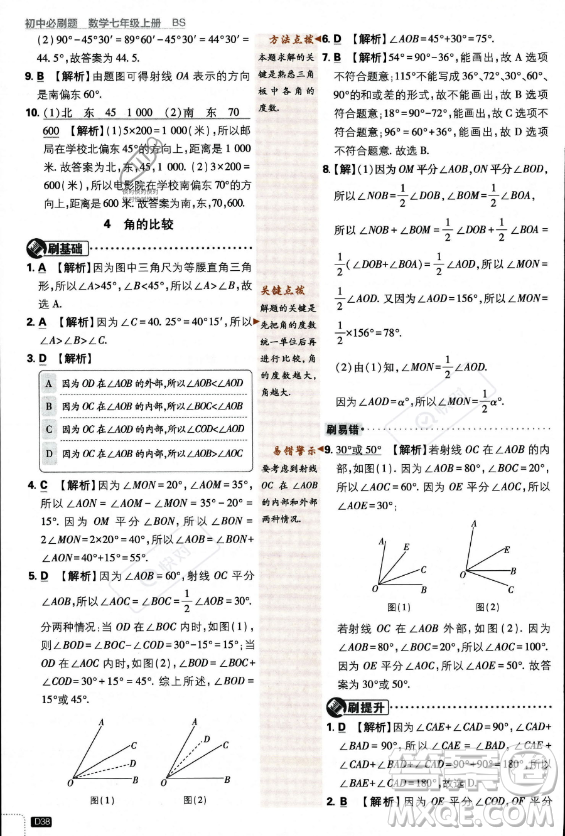 初中必刷题 数学七年级上册 BS
(2)90°-45.5°=89°60′-45°30′=44°30′=
44.5°,故答案为44.5.
9. B 【解析】由题图可得射线OA表示的方向
是南偏东60°.
10. (1)北 东 45 1 000 (2)南 东 70
600 【解析】(1)5×200=1 000(米),所以邮
局在学校北偏东45°的方向上,距离学校1 000
米.故答案为北,东,45,1 000. (2)3×200=
600(米),所以电影院在学校南偏东70°的方向
上,距离学校600米.故答案为南,东,70,600.
4 角的比较
刷基础
1. A 【解析】因为图中三角尺为等腰直角三角
形,所以∠A>45°,∠B<45°,所以∠A>∠B,故
选A.
2. A 【解析】因为∠C=40.25°=40°15′,所以
∠A>∠B>∠C.
3. D 【解析】
A 因为OD在∠AOB的外部,所以∠AOB<∠AOD
B 因为OC在∠AOB的内部,所以∠BOC<∠AOB
C 因为OC在∠AOD的内部,所以∠COD<∠AOD
D 因为OC在∠AOB的内部,所以∠AOB>∠AOC
4. C 【解析】因为∠MON=20°,∠AOM=35°,
所以∠AON=∠AOM-∠MON=35°-20°=
15°.因为OM平分∠BON,所以∠BON=
2∠MON=2×20°=40°,所以∠AOB=∠BON+
∠AON=40°+15°=55°.
5. D 【解析】因为∠AOB=60°,射线OC平分
∠AOB,所以∠AOC=∠BOC=1/2∠AOB=30°.
分两种情况:当OD在∠BOC内时,如图(1),
则∠BOD=∠BOC-∠COD=30°-15°=15°;当
OD在∠AOC内时,如图(2),则∠BOD=∠BOC+
∠COD=30°+15°=45°.综上所述,∠BOD=
15°或45°.
A D C O B
图(1)
A D C O B
图(2)
D38
方法点拨
本题求解的关
键是熟悉三角
板中各角的
度数.
关键点拨
解题的关键是
先把角的度数
统一单位后再
进行比较,角
的度数越大,
角越大.
易错警示
要考虑到射线
OC在∠AOB
的内部和外部
两种情况.
6. D 【解析】∠AOC=30°+45°=75°.
7. B 【解析】54°=90°-36°,能画出,故A选项
不符合题意;115°不能写成36°、72°、30°、60°、
90°的和或差的形式,故画不出,故B选项
符合题意;18°=90°-72°,能画出,故C选项不
符合题意;96°=60°+36°,能画出,故D选项不
符合题意.故选B.
8.【解】(1)因为OM平分∠AOB,ON平分∠BOD,
所以∠NOB=1/2∠DOB,∠BOM=1/2∠AOB,
所以∠NOB+∠BOM=1/2∠DOB+1/2∠AOB=
1/2(∠DOB+∠AOB)=1/2∠AOD,即∠MON=
1/2∠AOD.又因为∠AOD=156°,所以∠MON=1/2
×156°=78°.
(2)由(1)可知,∠MON=1/2∠AOD.
因为∠AOD=α°,所以∠MON=1/2α°.
刷易错
9. 30°或50° 【解析】若射线OC在∠AOB的内
部,如图(1).因为∠AOB=80°,∠BOC=20°,
所以∠AOC=60°.因为OE平分∠AOC,所以
∠AOE=30°;
A E C O B
图(1)
A E B C O
图(2)
若射线OC在∠AOB外部,如图(2).因为
∠AOB=80°,∠BOC=20°,所以∠AOC=100°.
因为OE平分∠AOC,所以∠AOE=50°.故答案
为30°或50°.
刷提升
1. D 【解析】因为∠CAE+∠CAD=90°,∠BAD+
∠CAD=90°,所以∠CAE+∠CAD+∠BAD+
∠CAD=∠BAE+∠CAD=90°+90°=180°,所以
∠BAE+∠CAD=180°,故选D.
2. B 【解析】因为∠AOC=∠BOD=90°,所以